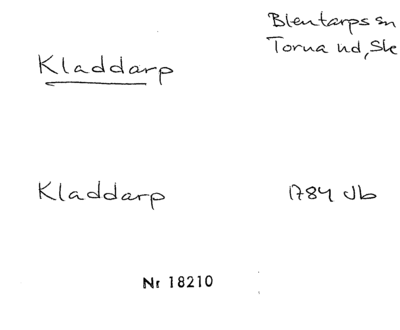 Blentarps sn
Torna hd, Sk
Kladdarp
Kladdarp 1784 Jb
Nr 18210